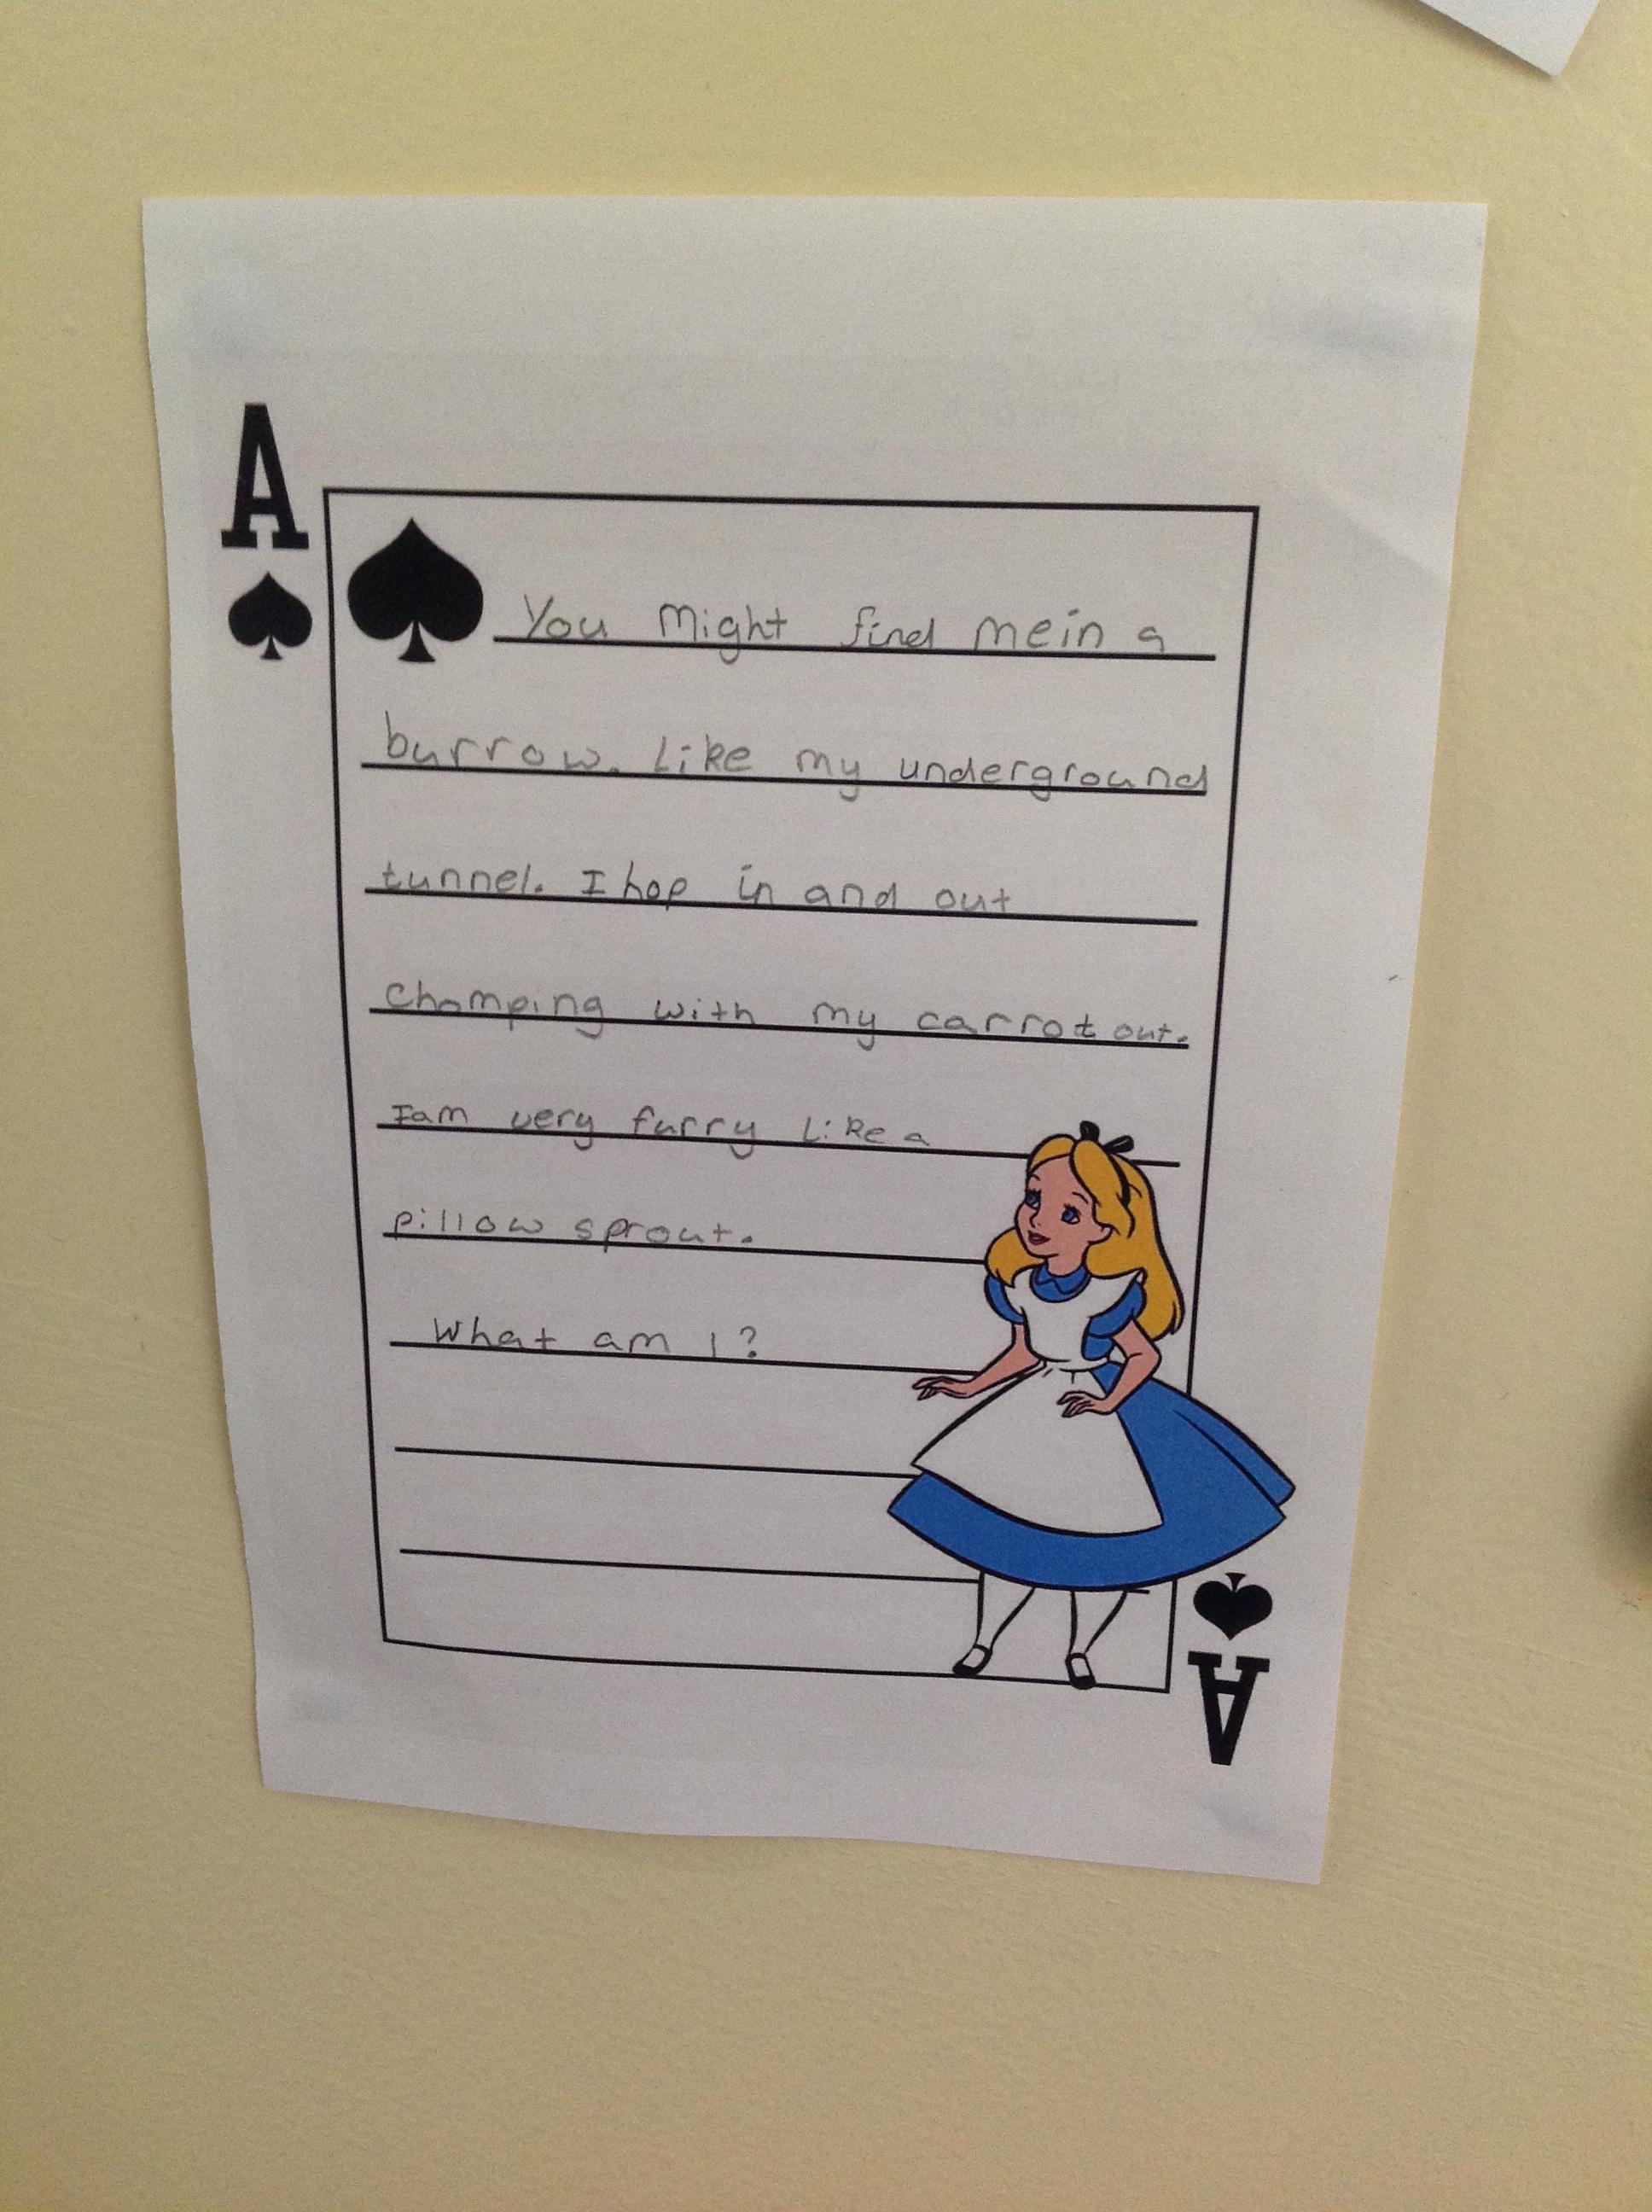 A
You Might find me in a
burrow. Like my underground
tunnel. I hop in and out
Chomping with my carrot out.
I am very furry Like a
pillow sprout.
What am I?
A